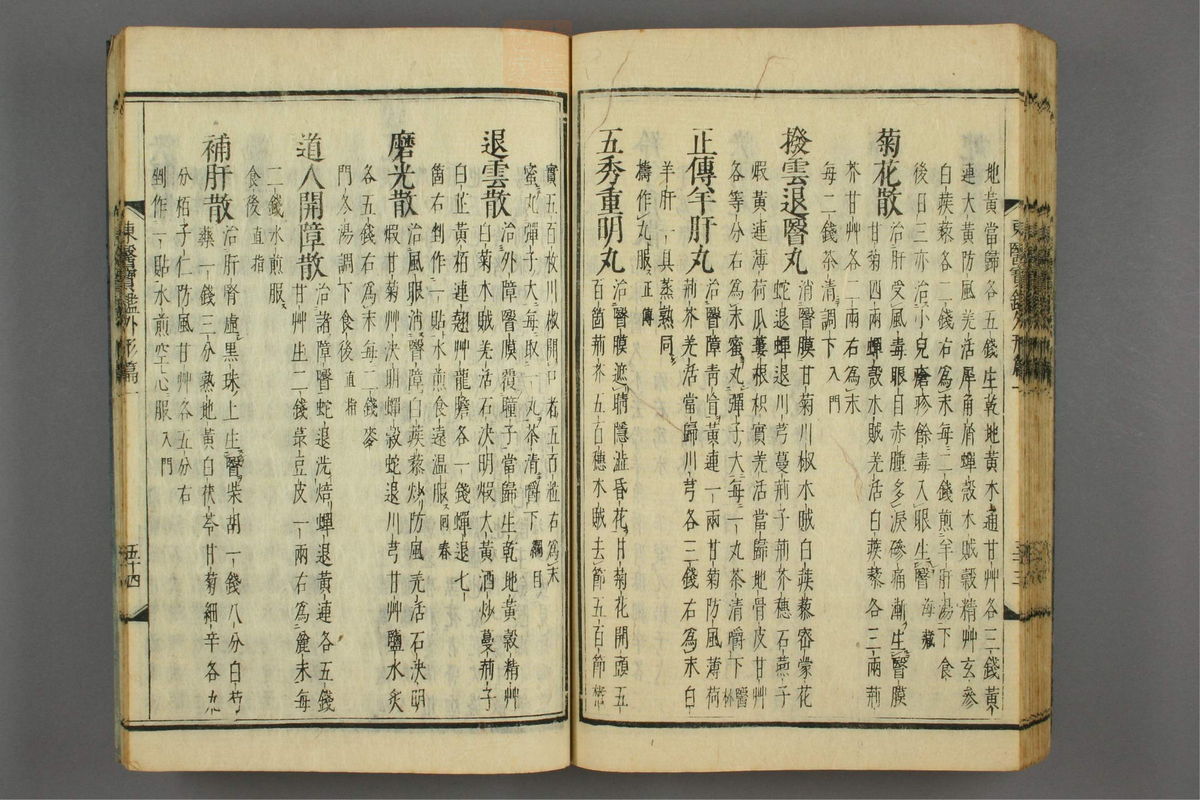 地黃當歸各五錢生乾地黃木通甘艸各三錢黃
連大黃防風羌活犀角屑蟬殼木賊穀精艸玄參
白蒺藜各二錢右爲末每二錢煎羊肝湯下食
後日亦治小兒瘡疹餘毒入眼生瞖海藏
菊花散治肝受風毒眼目赤腫多淚磣痛漸生瞖膜
甘菊四兩蟬殼木賊羌活白蒺藜各三兩荊
芥甘艸各二兩右爲末
每二錢茶清調下入門
撥雲退瞖丸消瞖膜甘菊川椒木賊白蒺藜密蒙花
蛇退蟬退川芎蔓荊子荊芥穗石燕子
蝦黃連薄荷瓜蔞根枳實羌活當歸地骨皮甘艸
各等分右爲末蜜丸彈子大每一丸茶清嚼下醫林
正傳羊肝丸治瞖障青盲黃連一兩甘菊防風薄荷
荊芥羌活當歸川芎各三錢右爲末白
羊肝一具蒸熟同
擣作丸服正傳
五秀重明丸治瞖膜遮睛隱澁昏花甘菊花開頭五
百箇荊芥五百穗木賊去節五百節楮
實五百枚川椒開口者五百粒右爲末
蜜丸彈子大每取一丸茶清嚼下綱目
退雲散治外障瞖膜覆瞳子當歸生乾地黃穀精艸
白菊木賊羌活石決明煆大黃酒炒蔓荊子
白芷黃栢連翹艸龍膽各一錢蟬退七
箇右剉作一貼水煎食遠溫服回春
磨光散治風眼消瞖障白蒺藜炒防風羌活石決明
煆甘菊艸決明蟬殼蛇退川芎甘艸鹽水炙
各五錢右爲末每二錢麥
門冬湯調下食後直指
道人開障散治諸障瞖蛇退洗焙蟬退黃連各五錢
甘艸生二錢菉豆皮一兩右爲麄末每
二錢水煎服
食後直指
補肝散治肝腎虛黑珠上生瞖柴胡一錢八分白芍
藥一錢三分熟地黃白茯苓甘菊細辛各
分栢子仁防風甘艸各五分右
剉作一貼水煎空心服入門
東醫寶鑑外形篇一
五十三
東醫寶鑑外形篇一
五十四